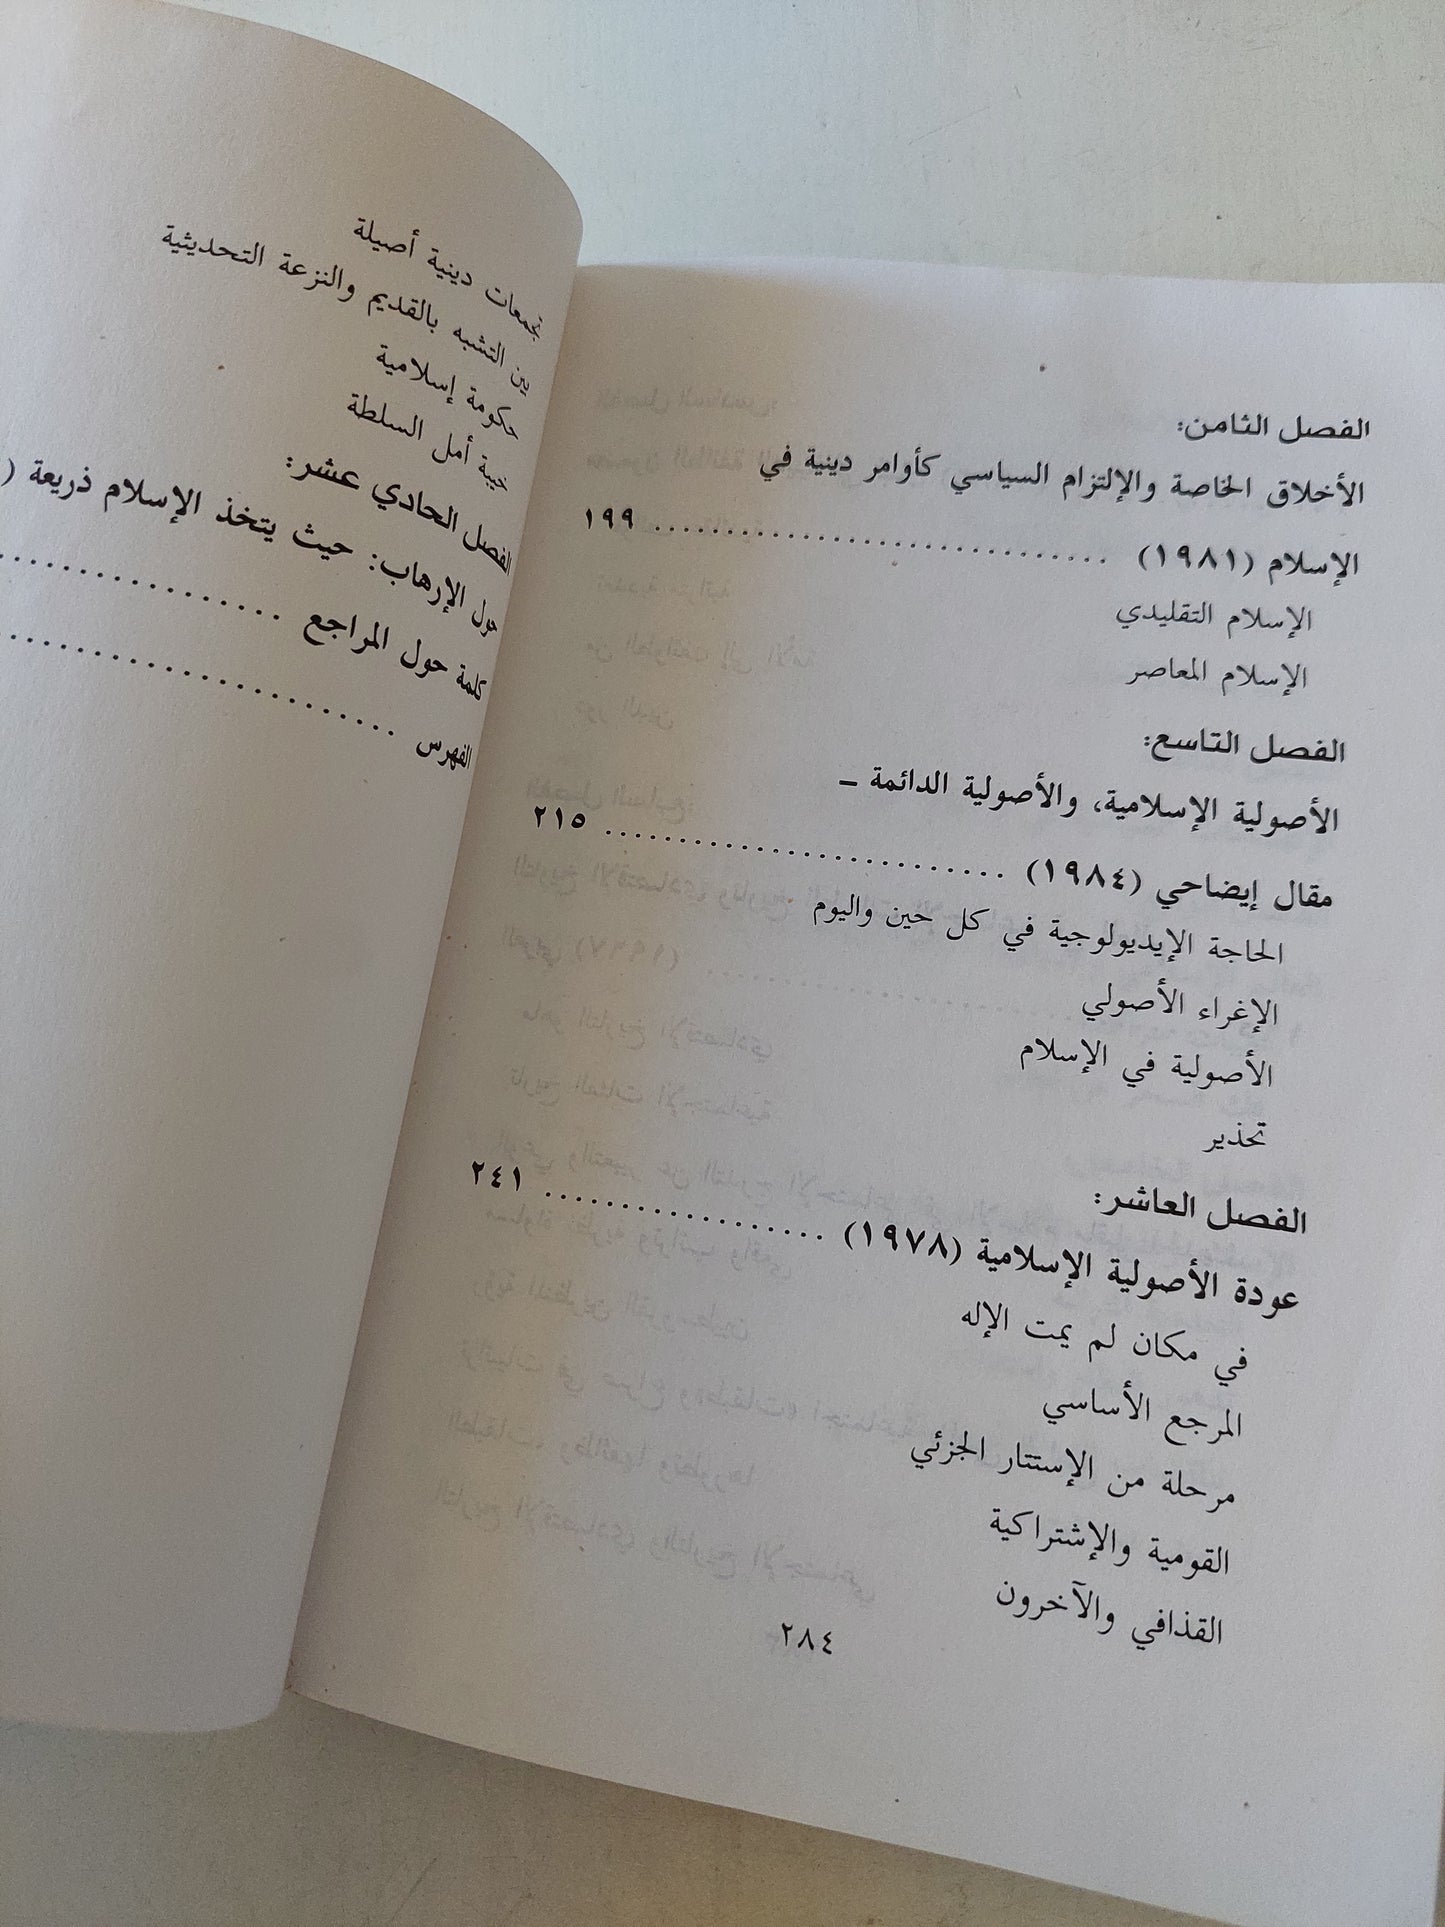 الفصل الثامن:
الأخلاق الخاصة والإلتزام السياسي كأوامر دينية في
الإسلام (١٩٨١) .............................. ١٩٩
الإسلام التقليدي
الإسلام المعاصر
الفصل التاسع:
الأصولية الإسلامية، والأصولية الدائمة –
مقال إيضاحي (١٩٨٤) ......................... ٢١٥
الحاجة الإيديولوجية في كل حين واليوم
الإغراء الأصولي
الأصولية في الإسلام
تحذير
الفصل العاشر:
عودة الأصولية الإسلامية (١٩٧٨) ................. ٢٤١
في مكان لم يمت الإله
المرجع الأساسي
مرحلة من الإستتار الجزئي
القومية والإشتراكية
القذافي والآخرون
٢٨٤
تجمعات دينية أصيلة
بين التشبه بالقديم والنزعة التحديثية
حكومة إسلامية
خيبة أمل السلطة
الفصل الحادي عشر:
حول الإرهاب: حيث يتخذ الإسلام ذريعة (
كلمة حول المراجع ....................
الفهرس ..........................